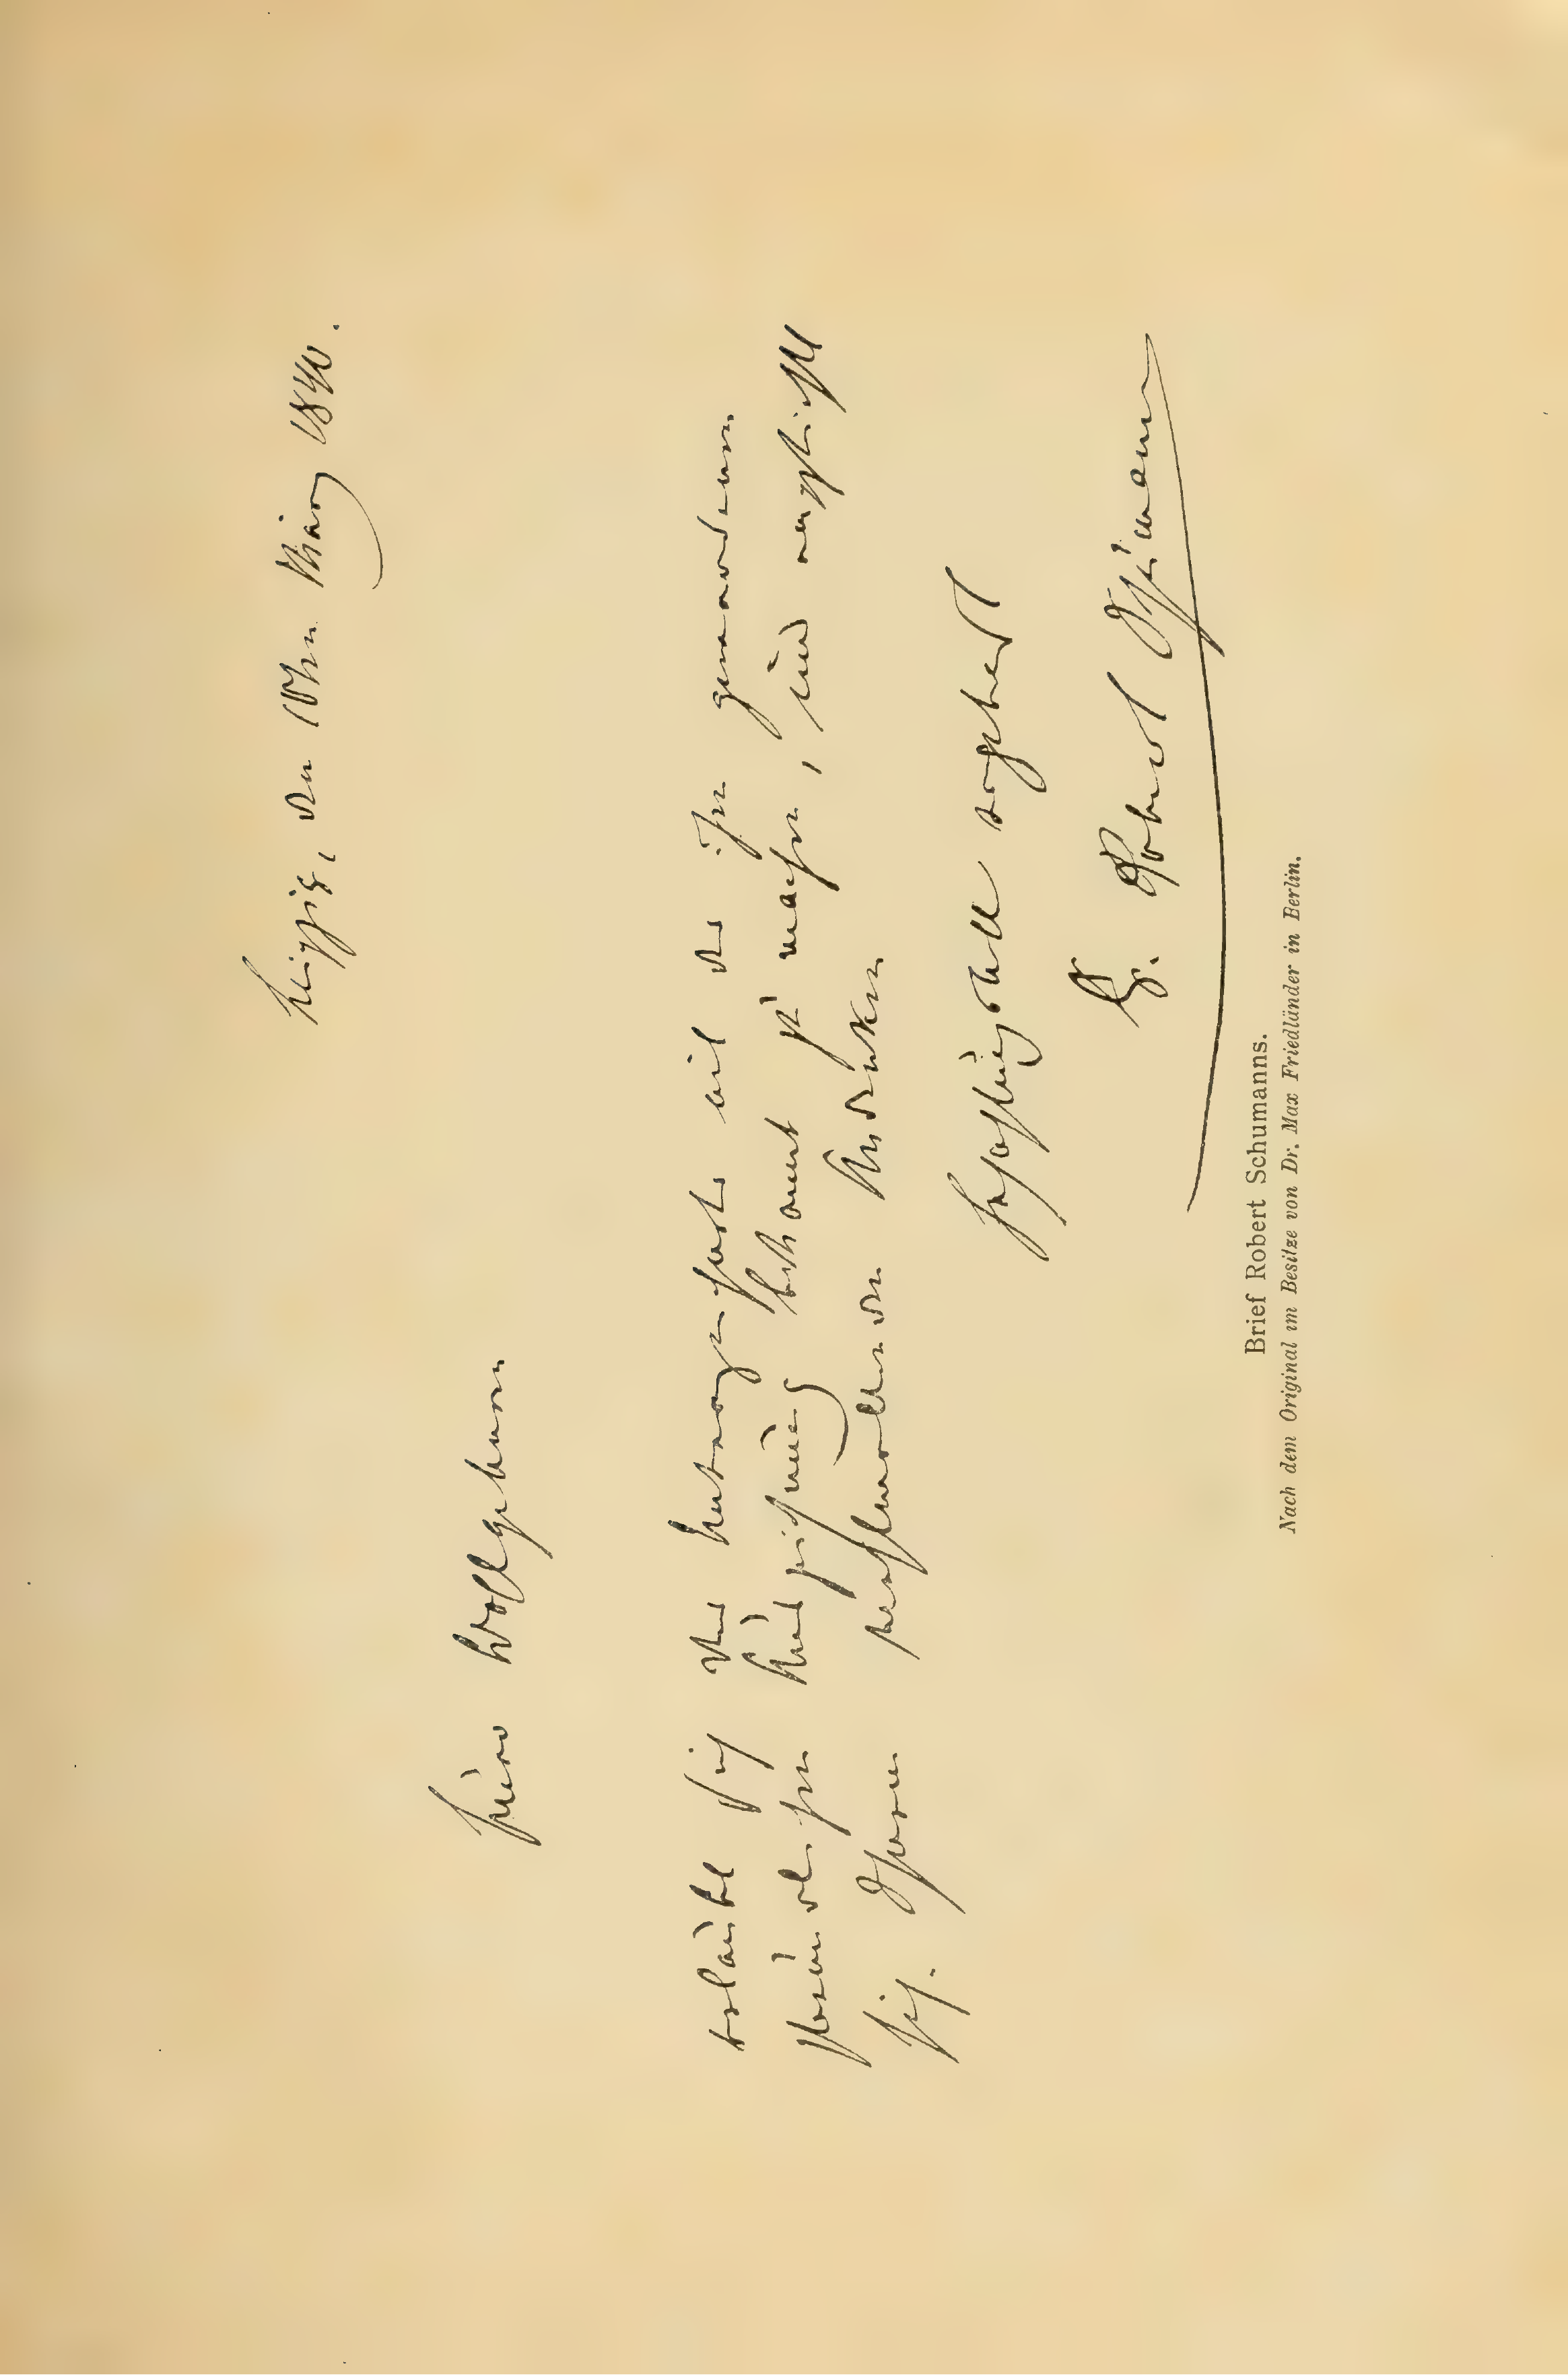 Leipzig, den 10ten März 1840.
Euer Wohlgeboren
erlaubt sich der Unterzeichnete mit der ihm gewordenen
freundlichen Auszeichnung bekannt zu machen, und empfiehlt
sich Ihrem Andenken
hochachtungsvoll ergebenst
Dr. Robert Schumann
Brief Robert Schumanns.
Nach dem Original im Besitze von Dr. Max Friedländer in Berlin.